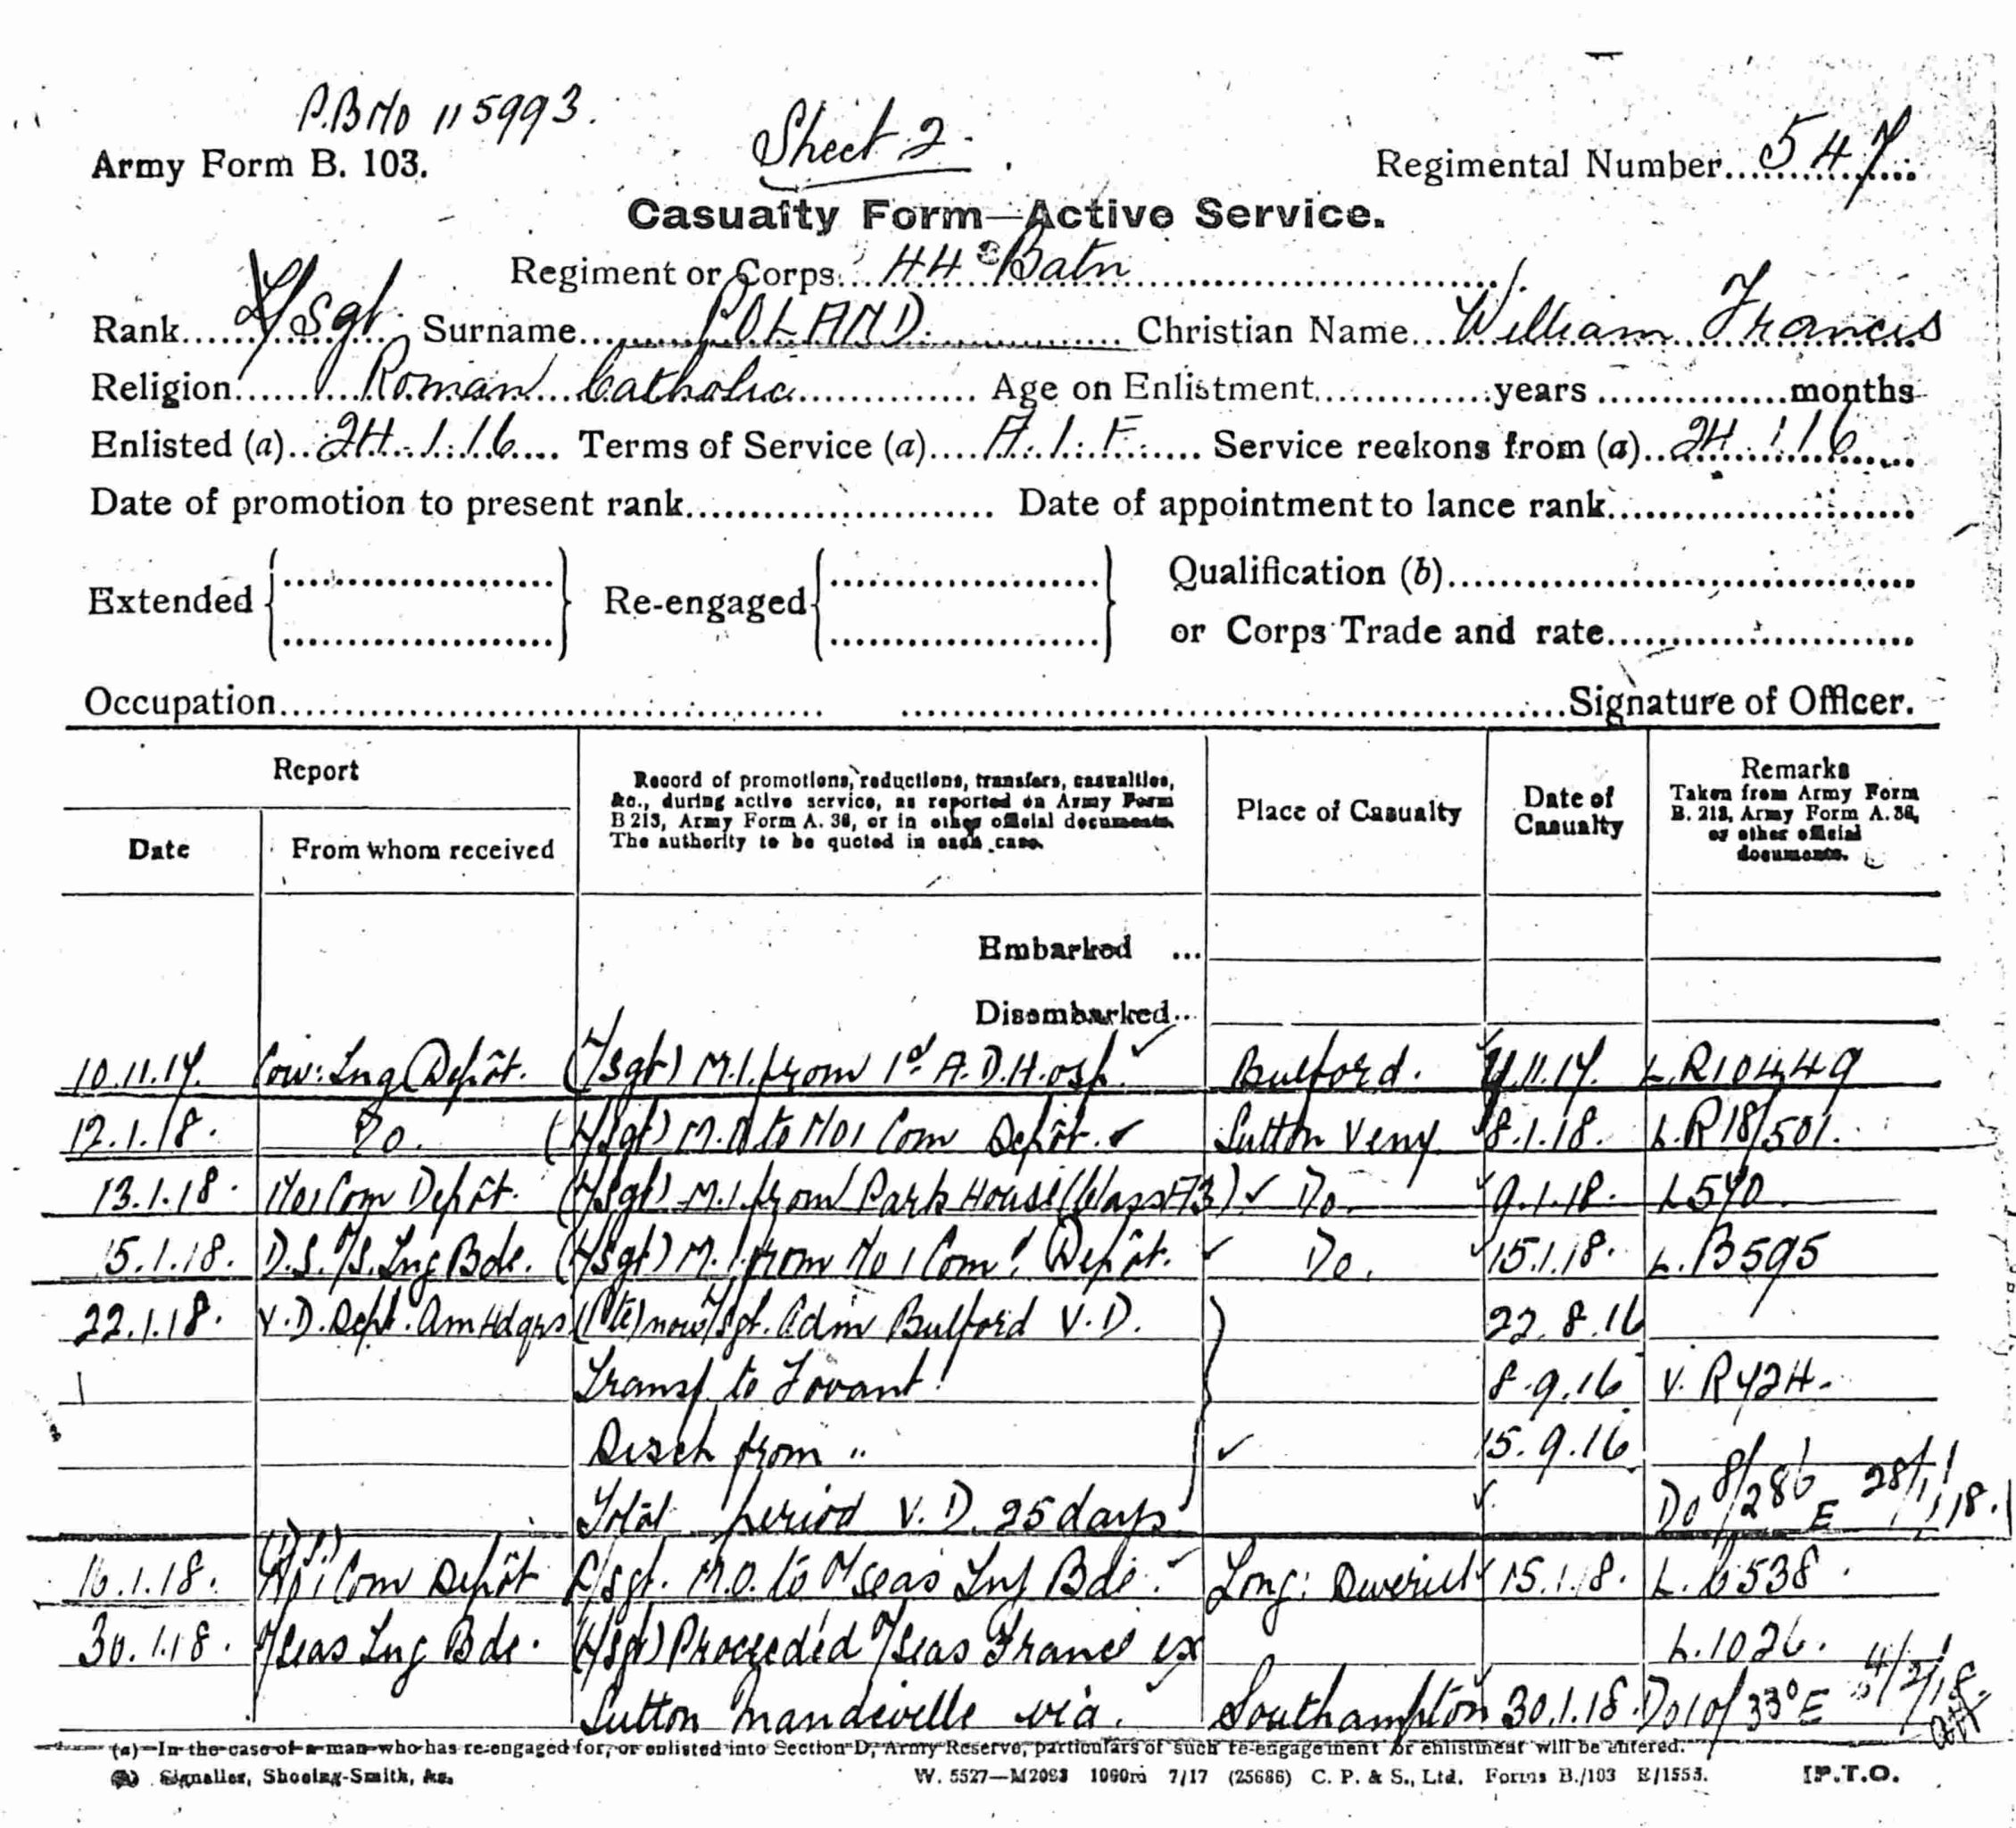 P.B No 115993.
Army Form B. 103.
Sheet 2.
Regimental Number 547
Casualty Form—Active Service.
Regiment or Corps 44 Batn
Rank L/Sgt Surname POLAND. Christian Name William Francis
Religion Roman Catholic Age on Enlistment years months
Enlisted (a) 24.1.16 Terms of Service (a) A.I.F. Service reckons from (a) 24.1.16
Date of promotion to present rank Date of appointment to lance rank
Extended Re-engaged Qualification (b)
or Corps Trade and rate
Occupation Signature of Officer.
Report
Date From whom received
Record of promotions, reductions, transfers, casualties,
&c., during active service, as reported on Army Form
B 213, Army Form A. 36, or in other official documents.
The authority to be quoted in each case.
Place of Casualty
Date of
Casualty
Remarks
Taken from Army Form
B. 213, Army Form A. 36,
or other official
documents.
Embarked ...
Disembarked...
10.11.17. Con: Trg Depôt. (L/Sgt) M.I. from 1st A.D. Hosp. Bulford. 7.11.17. L.R10449
12.1.18. Do. (L/Sgt) M.O to No 1 Com Depôt. Sutton Veny 8.1.18. L.R18/501.
13.1.18. No 1 Com Depôt. (L/Sgt) M.I. from Park House (Class A3) Do. 9.1.18. L570
15.1.18. O.S. Trg Bde. (L/Sgt) M.I. from No 1 Com! Depôt. Do. 15.1.18. L.B595
22.1.18. V.D. Dept. Adm Hdqrs (Pte) now L/Sgt. Adm Bulford V.D. 22.8.16
Transf. to Fovant! 8.9.16 V.R424.
Disch from " 15.9.16
Total period V.D. 25 days Do 8/286 E 28/1/18.
16.1.18. No 1 Com Depôt L/Sgt. M.O. to O/seas Trg Bde. Long: Deverill 15.1.18. L.6538.
30.1.18. O/Seas Trg Bde. (L/Sgt) Proceeded O/Seas France ex L.1026.
Sutton Mandeville via. Southampton 30.1.18. Do 10/33° E 4/2/18.
(a) In the case of a man who has re-engaged for, or enlisted into Section D, Army Reserve, particulars of such re-engagement or enlistment will be entered.
Signaller, Shoeing-Smith, &c. W. 5527—M2093 1000m 7/17 (25686) C. P. & S., Ltd. Forms B./103 E/1553. [P.T.O.